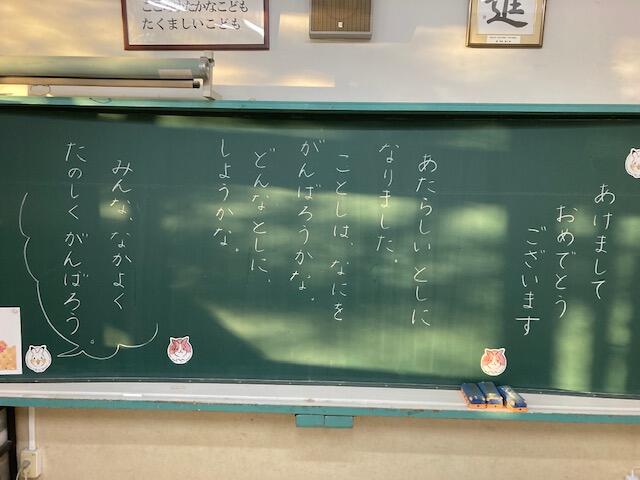 こころゆたかなこども
たくましいこども
進
あけまして
おめでとう
ございます
あたらしい としに
なりました。
ことしは、なにを
がんばろうかな。
どんなとしに、
しようかな。
みんな、なかよく
たのしく がんばろう。